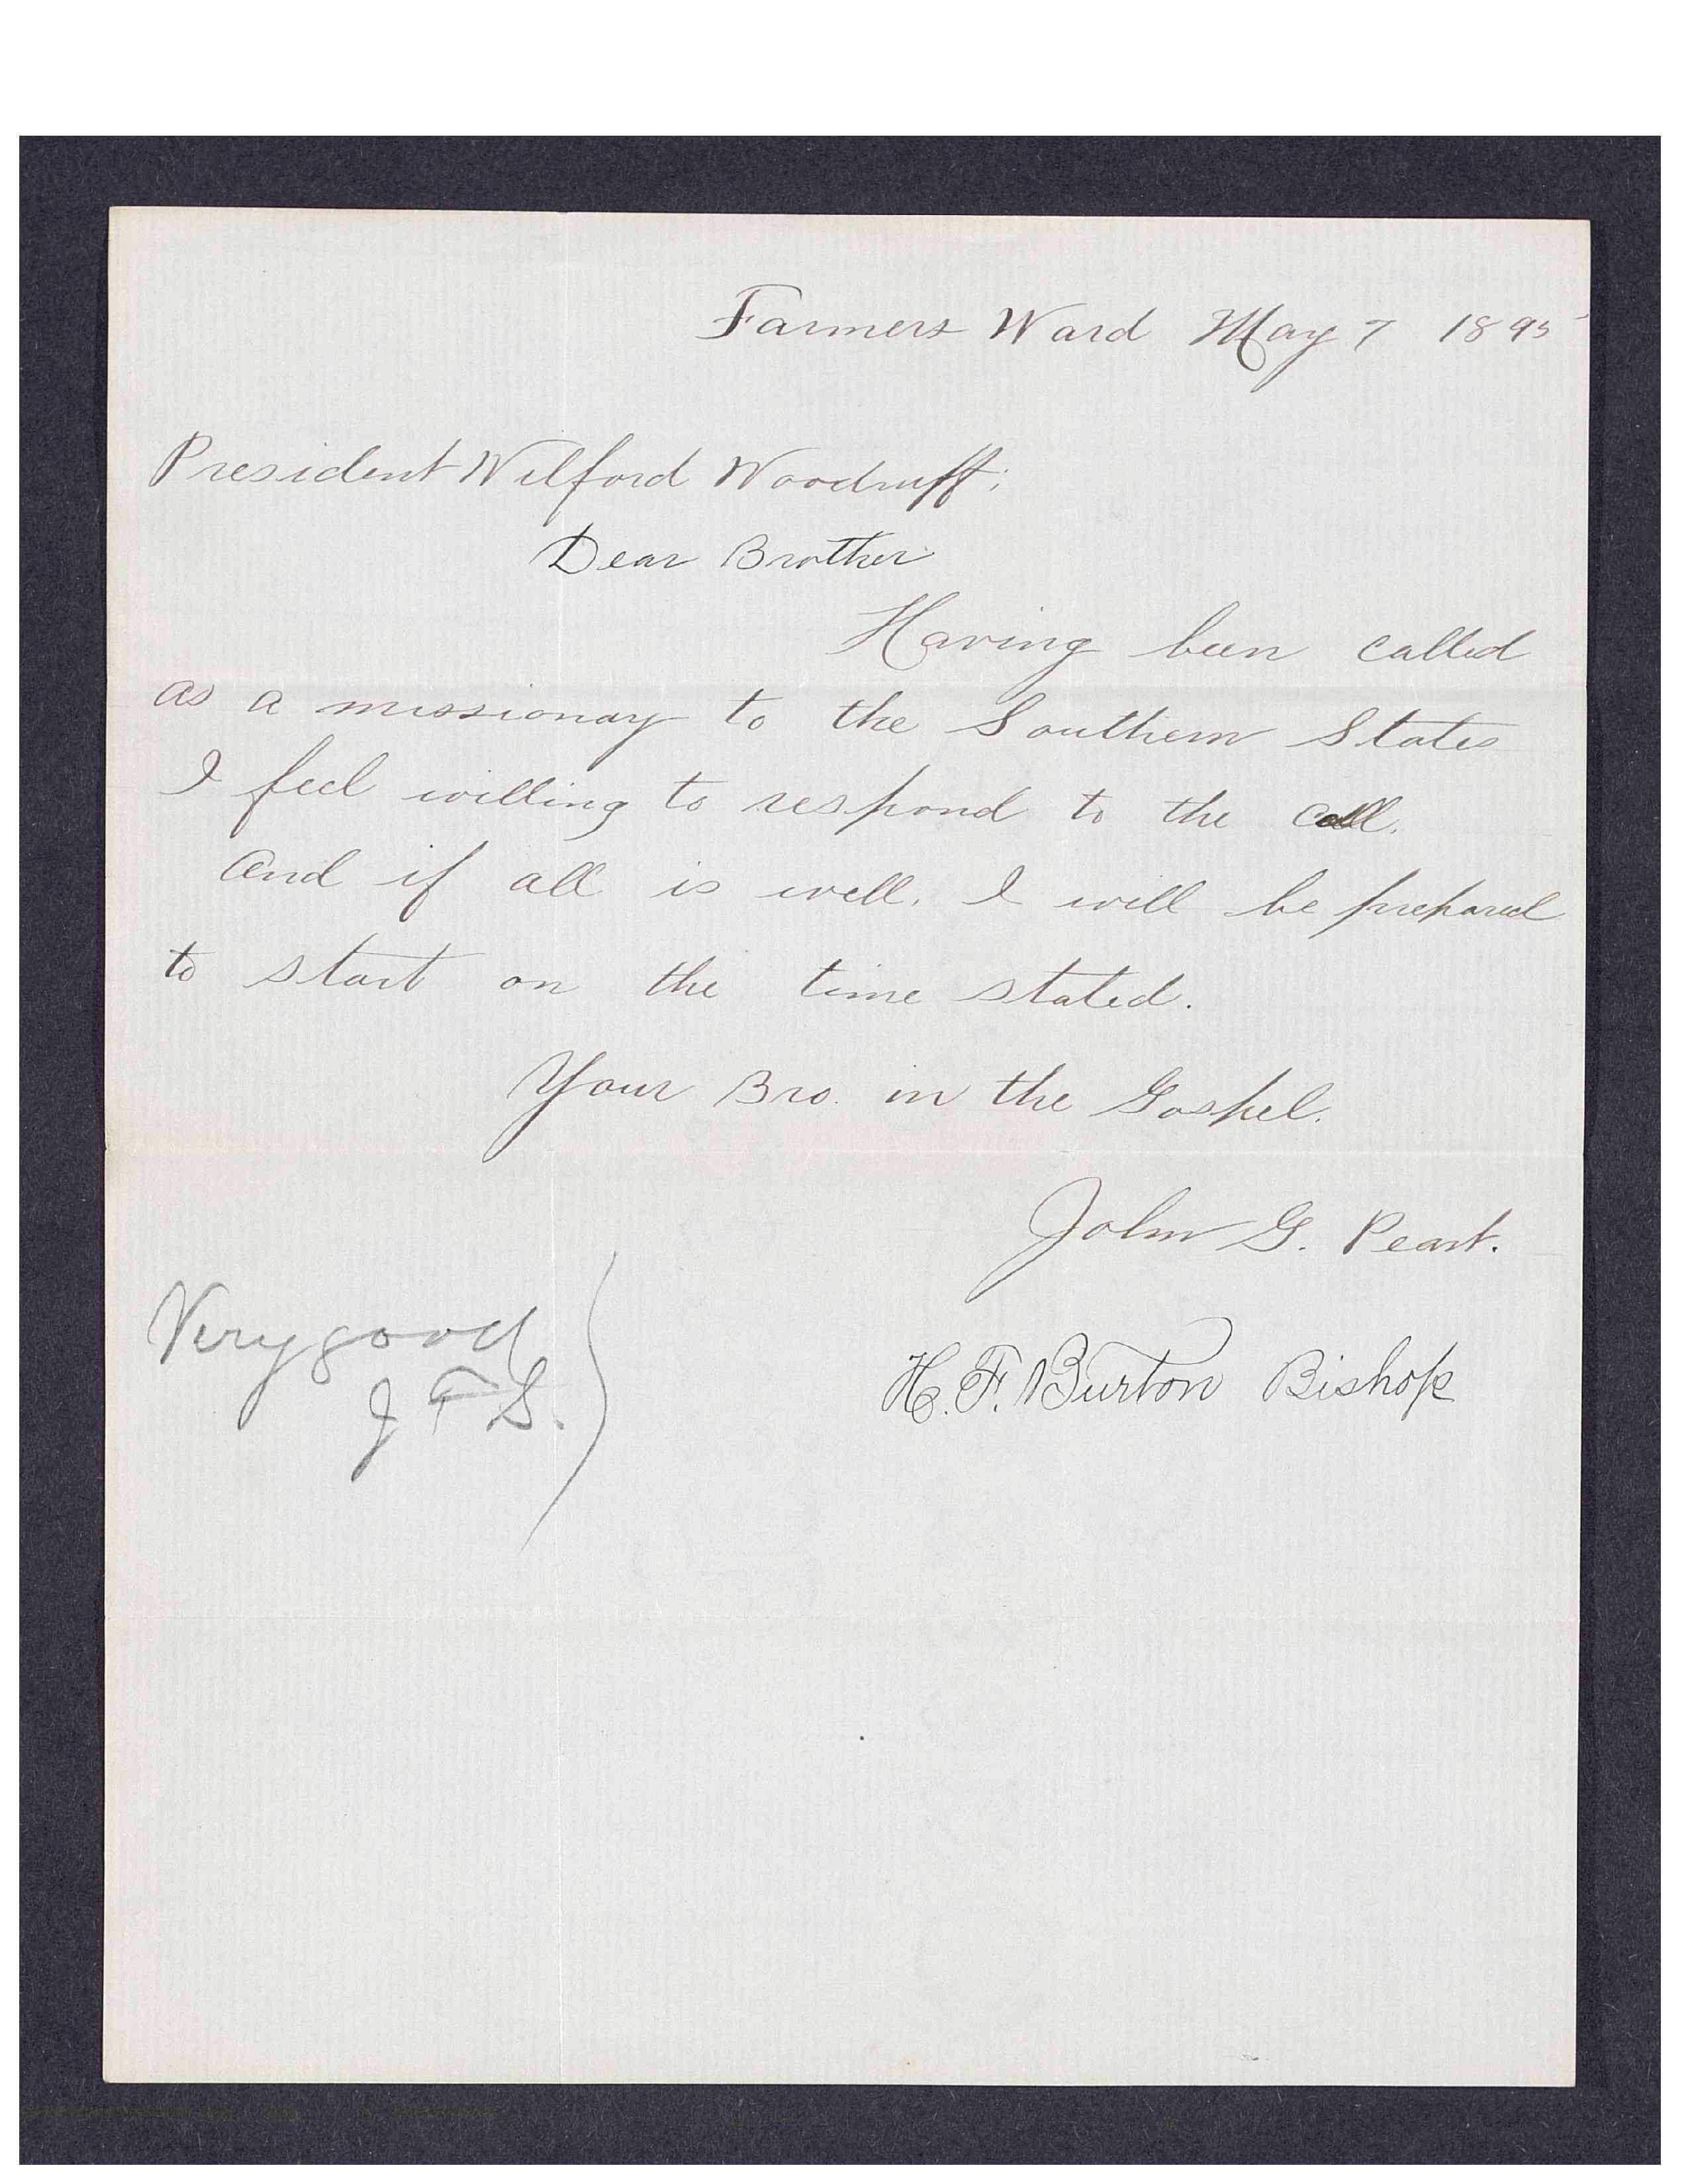 Farmers Ward May 7 1895
President Wilford Woodruff;
Dear Brother
Having been called
as a missionay to the Southern States
I feel willing to respond to the call.
And if all is well. I will be prepared
to start on the time stated.
Your Bro. in the Gospel.
John G. Peart.
H. F. Burton Bishop
Very good
J F S.